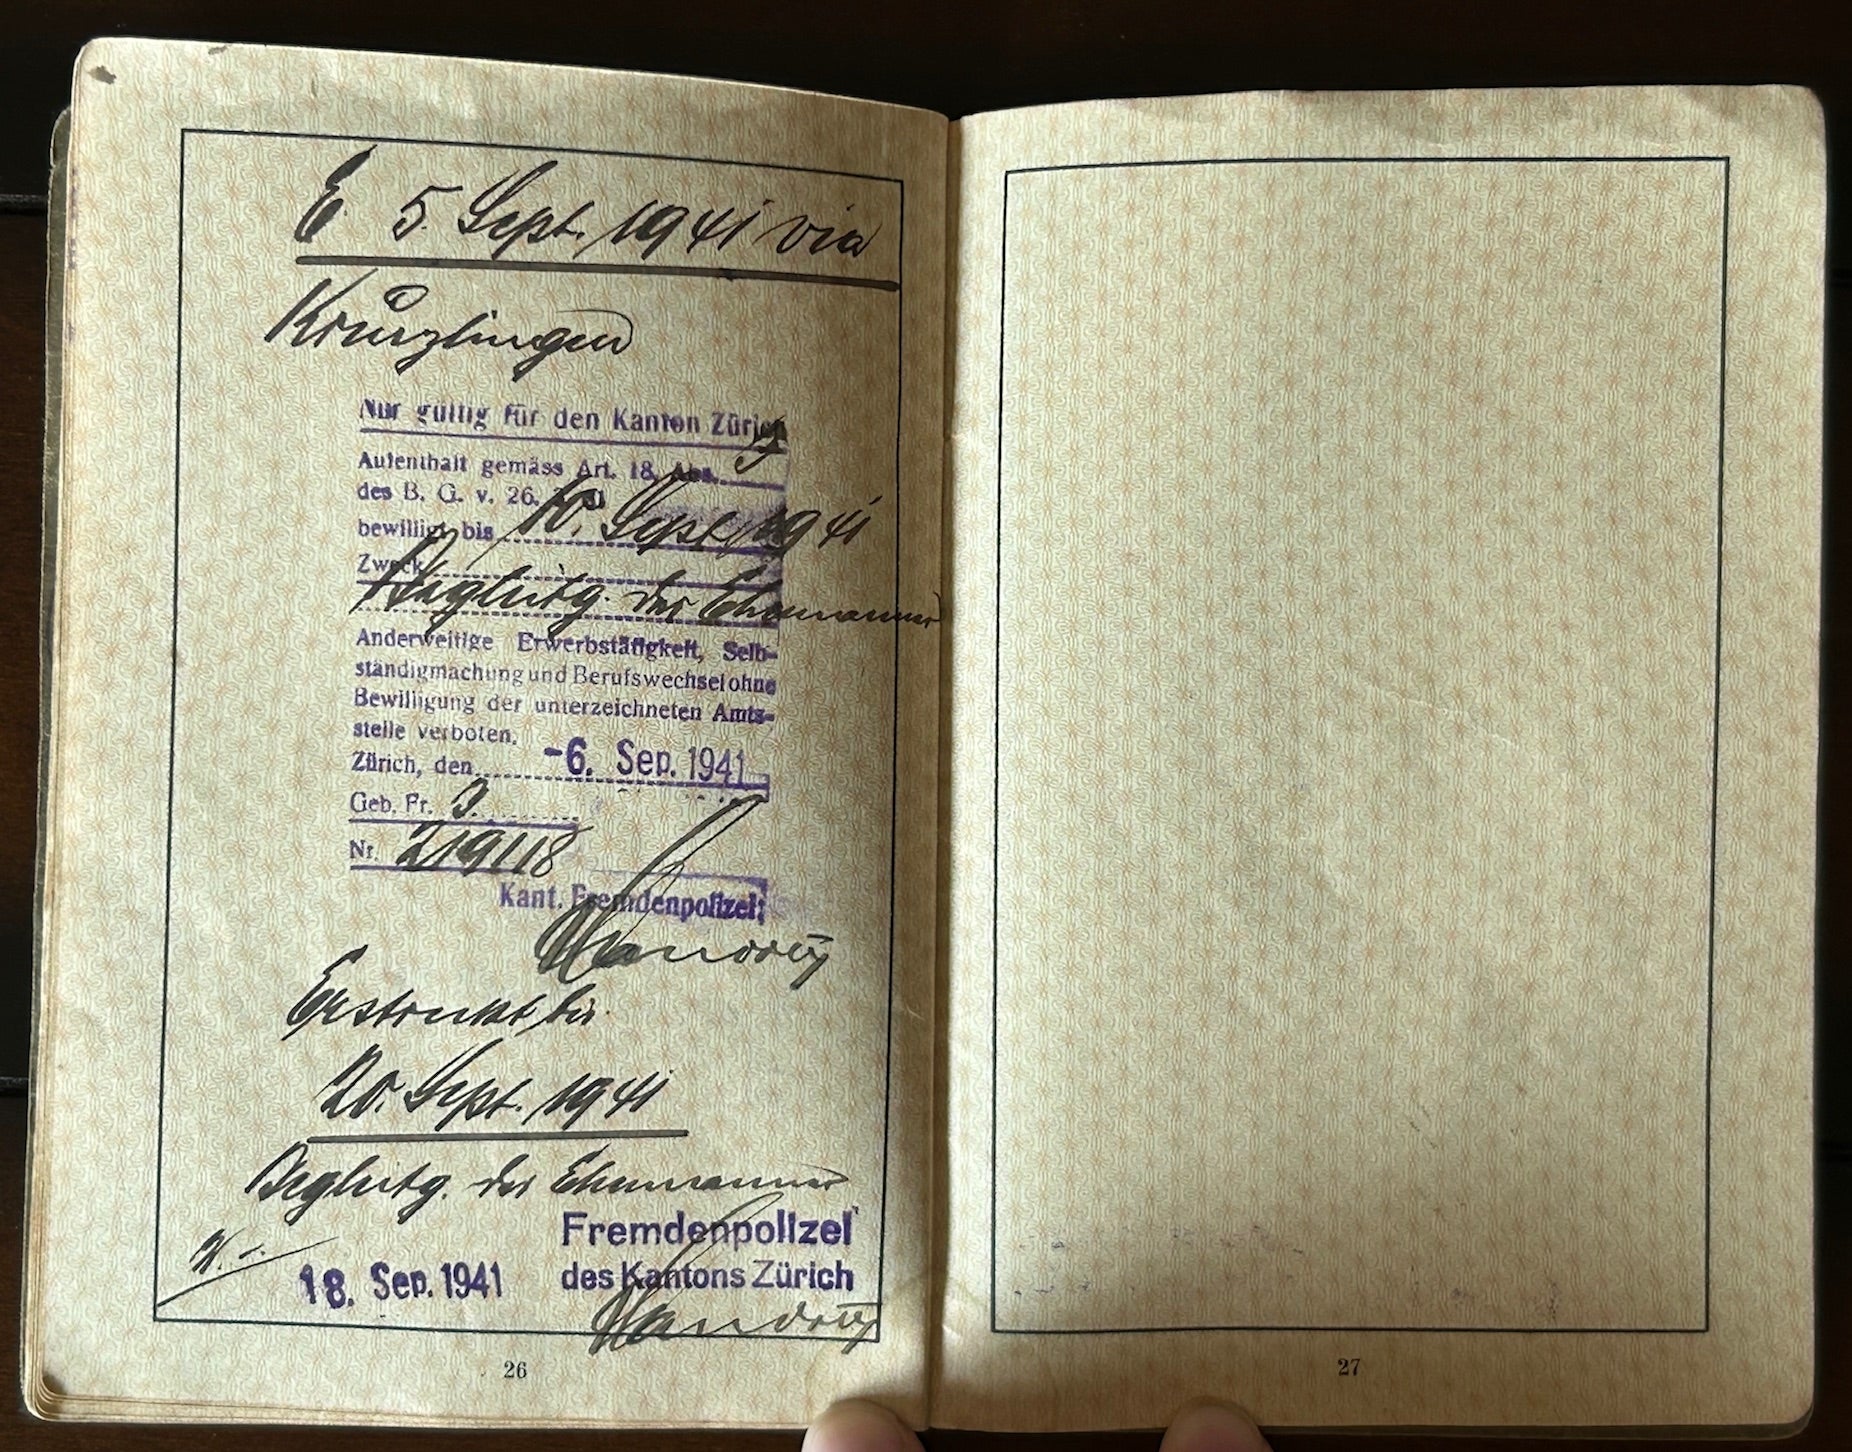 E. 5. Sept. 1941 via
Kreuzlingen
Nur gültig für den Kanton Zürich
Aufenthalt gemäss Art. 18, Abs.
des B. G. v. 26.
bewilligt bis 10. Sept. 1941
Zweck
Begleitg. des Ehemannes
Anderweitige Erwerbstätigkeit, Selb-
ständigmachung und Berufswechsel ohne
Bewilligung der unterzeichneten Amts-
stelle verboten.
Zürich, den -6. Sep. 1941
Geb. Fr. 3.
Nr. 219118
Kant. Fremdenpolizei:
Erstreckt bis
20. Sept. 1941
Begleitg. des Ehemannes
Fremdenpolizei
18. Sep. 1941 des Kantons Zürich
26
27